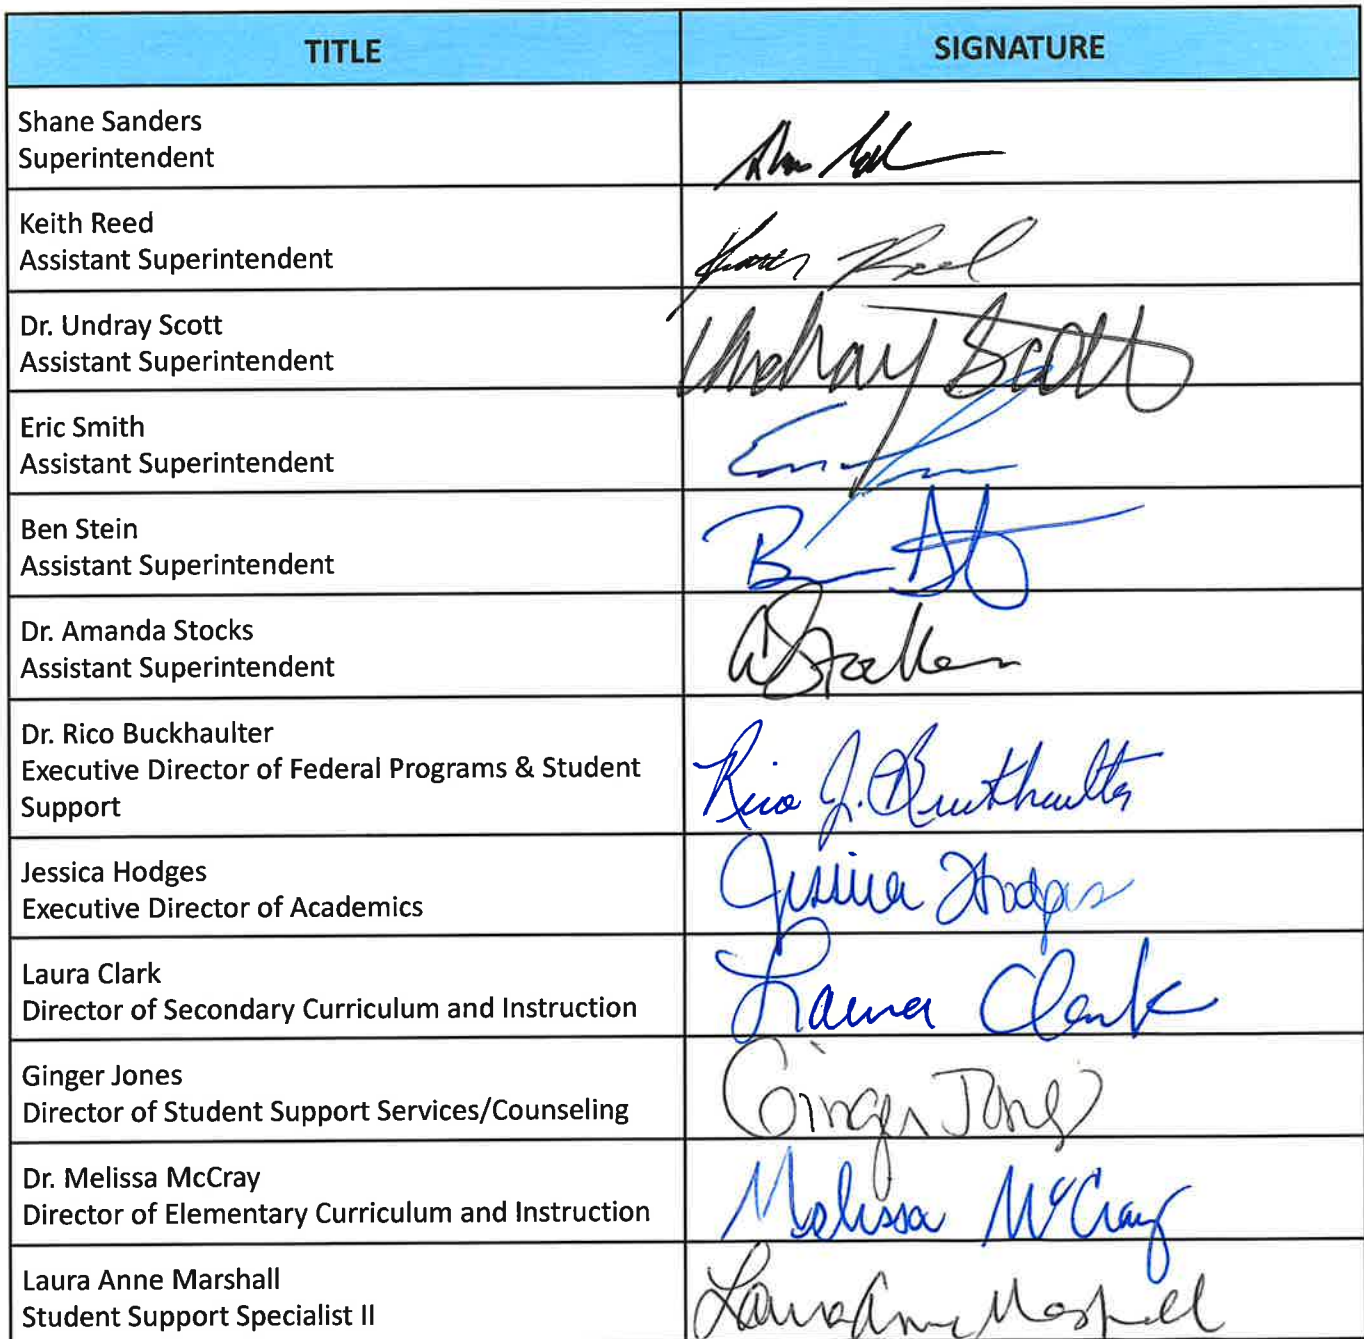 TITLE SIGNATURE
Shane Sanders
Superintendent
Keith Reed
Assistant Superintendent
Keith Reed
Dr. Undray Scott
Assistant Superintendent
Undray Scott
Eric Smith
Assistant Superintendent
Ben Stein
Assistant Superintendent
Dr. Amanda Stocks
Assistant Superintendent
Dr. Rico Buckhaulter
Executive Director of Federal Programs & Student
Support
Rico J. Buckhaulter
Jessica Hodges
Executive Director of Academics
Jessica Hodges
Laura Clark
Director of Secondary Curriculum and Instruction
Laura Clark
Ginger Jones
Director of Student Support Services/Counseling
Ginger Jones
Dr. Melissa McCray
Director of Elementary Curriculum and Instruction
Melissa McCray
Laura Anne Marshall
Student Support Specialist II
Laura Anne Marshall